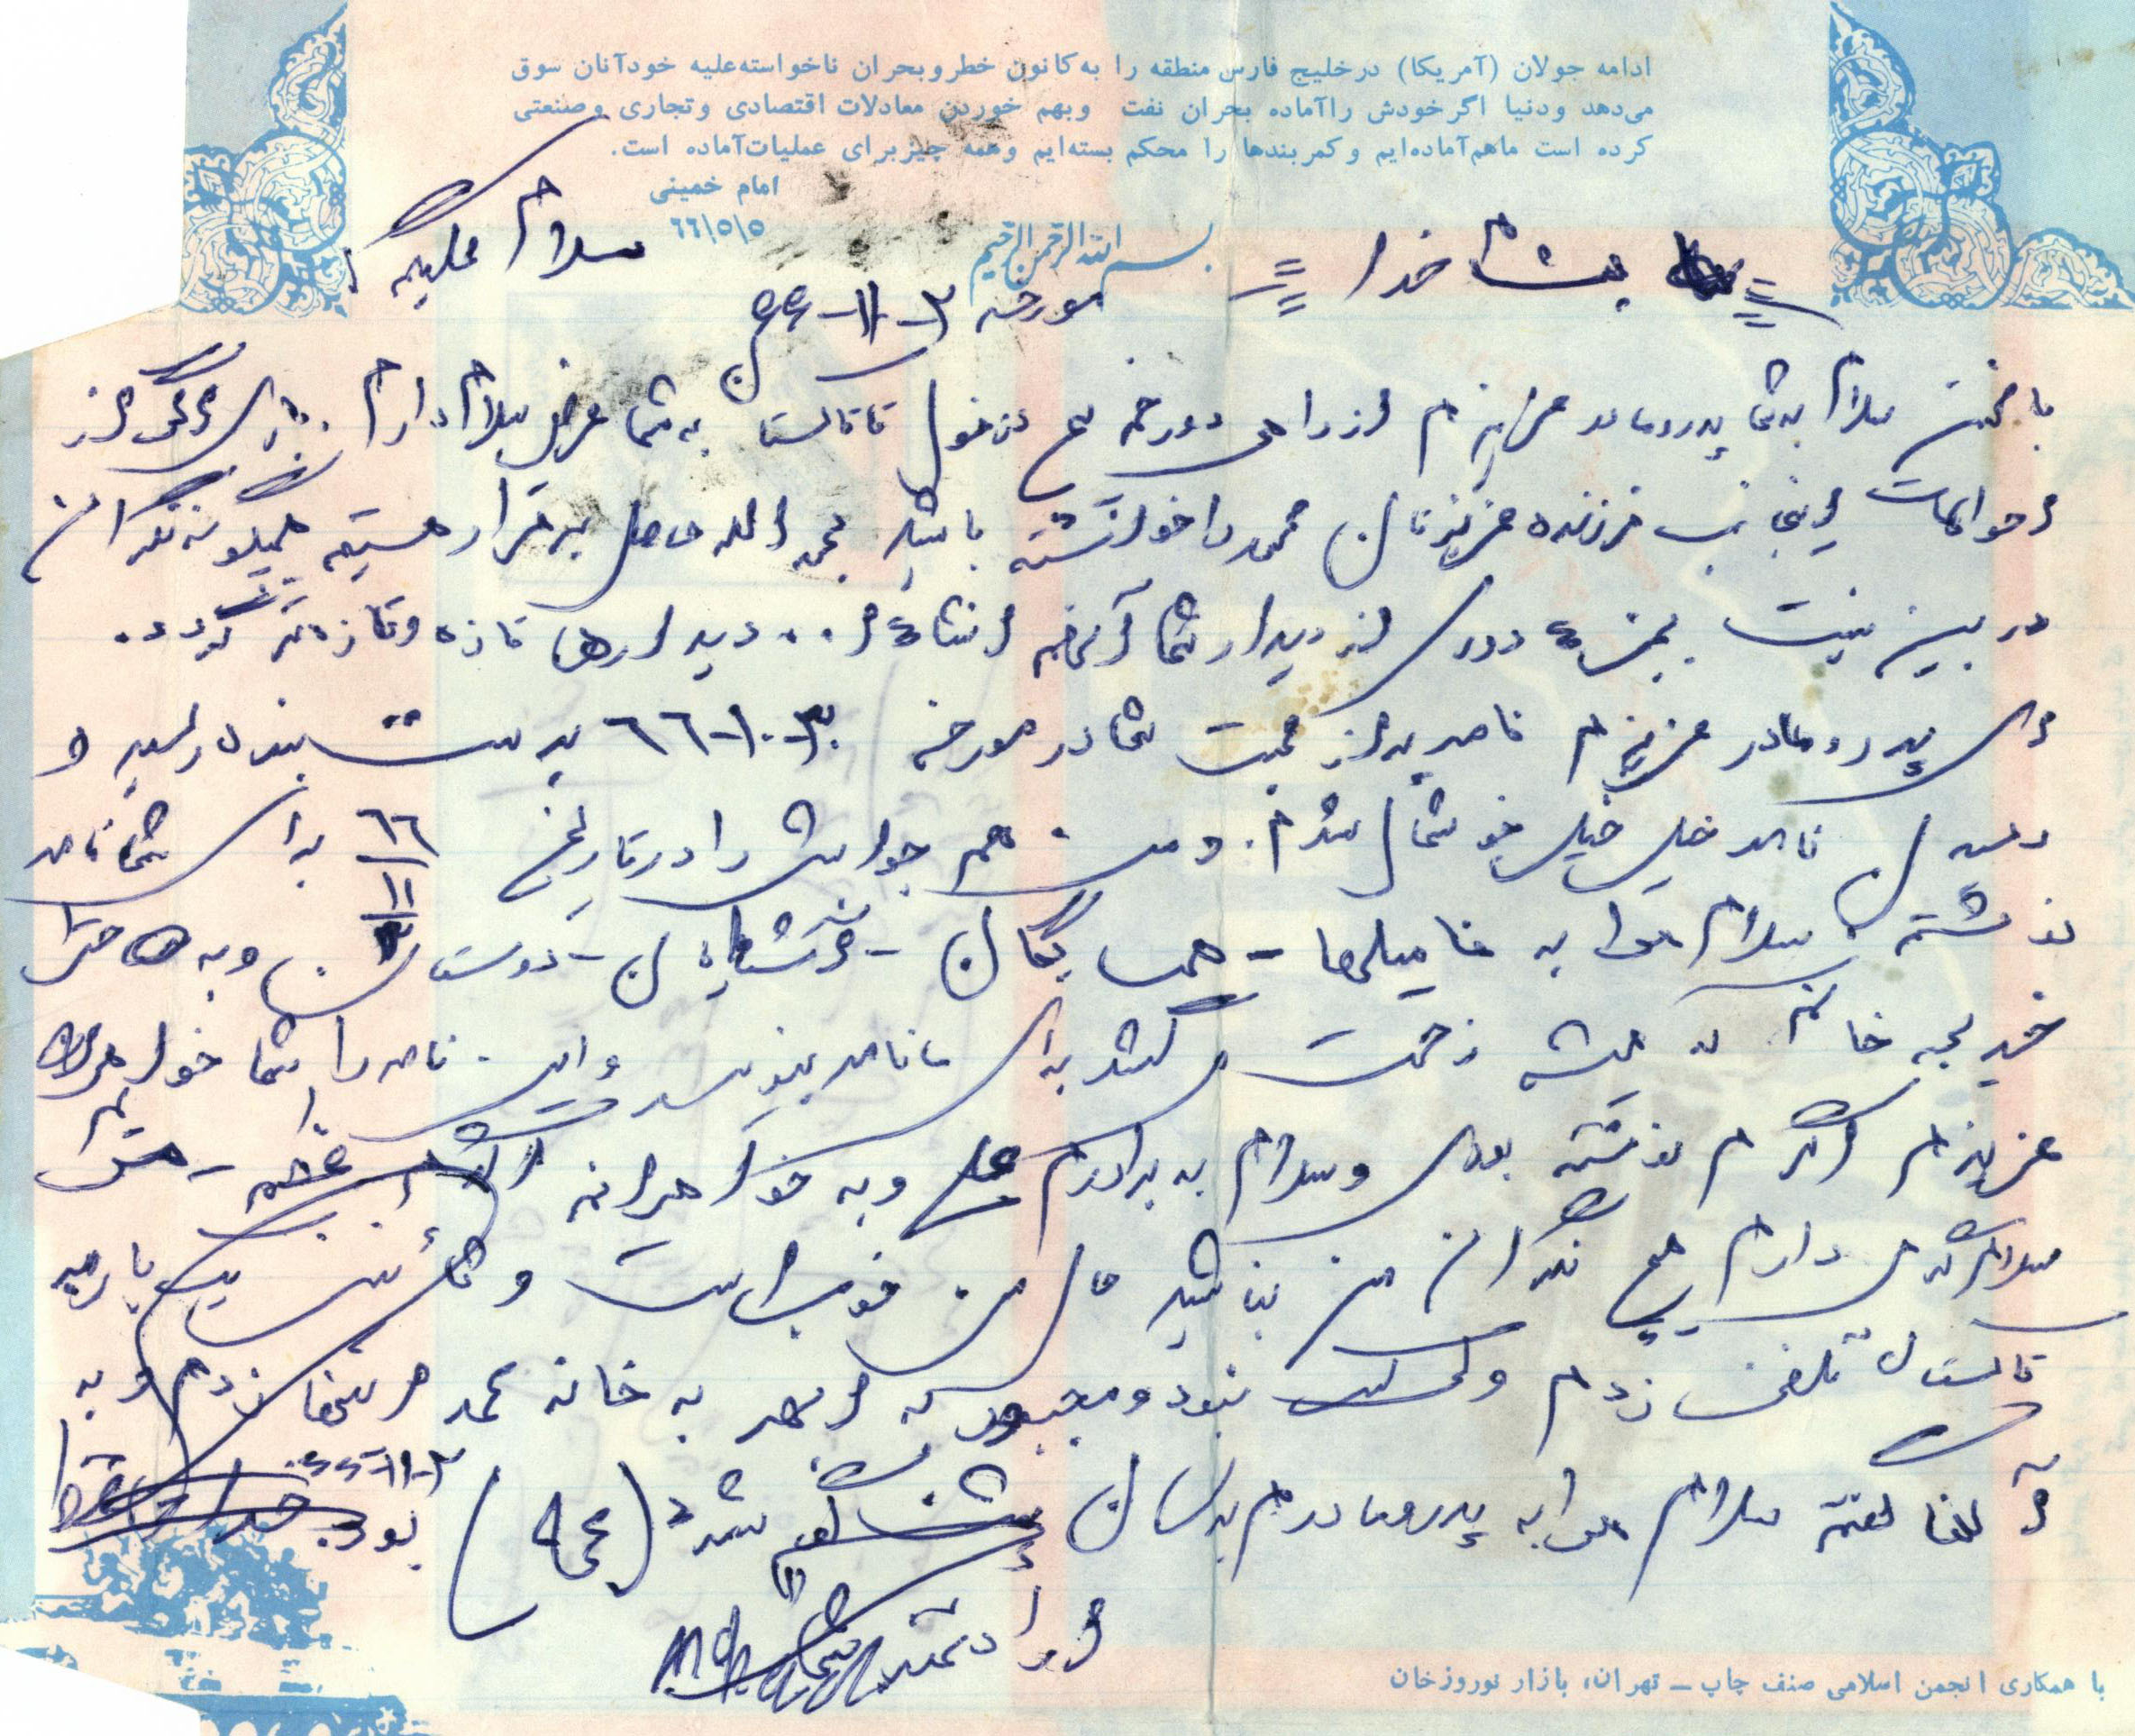 ادامه جولان (آمریکا) درخلیج فارس منطقه را به‌کانون خطروبحران ناخواسته‌علیه خودآنان سوق
می‌دهد ودنیا اگرخودش راآماده بحران نفت وبهم خوردن معادلات اقتصادی وتجاری وصنعتی
کرده است ماهم‌آماده‌ایم وکمربندها را محکم بسته‌ایم وهمه چیزبرای عملیات‌آماده است.
امام خمینی
۶۶/۵/۵
بسم الله الرحمن الرحیم
خدا
سلام علیکم
مورخه ۳-۱۱-۶۶
با سلام به شما پدرومادر عزیزم از راهی دور دزفول تا تاکستان به شما عرض سلام دارم
احوالات اینجانب فرزنده عزیزتان محمد را خواسته باشید بحمدالله برقرار هستیم هیچگونه نگران
در بین نیست بجز دوری از دیدار شما آنهم انشاءا.. دیدارها تازه وتازه‌تر گردد.
ای پدرومادر عزیزم نامه پراز محبت شما درمورخه ۳۰-۱۰-۶۶ به دست بنده رسید و
نامه خیلی خیلی خوشحال شدم. و من هم جوابش را درتاریخ ۶۶/۱۱ برای شما نامه
نوشتم سلام مرا به فامیلها - همسایگان - دوستان و به
خدیجه خانم که همیشه زحمت میکشد برای ما نامه بنویسد و این نامه را شما خواهر
عزیزم اکرم نوشته بودی وسلام به برادرم علی وبه خواهرانم اکرم اعظم
سلام میدارم هیچ نگران من نباشید حال من خوب است و
تاکستان تلفن زدم ولی کسی نبود و مجبور به خانه محمد زدم و به
آنها گفتم سلام مرا به پدرومادرم برسان
۳-۱۱-۶۶
بود خداحافظ
ارادتمند شما
با همکاری انجمن اسلامی صنف چاپ ــ تهران، بازار نوروزخان